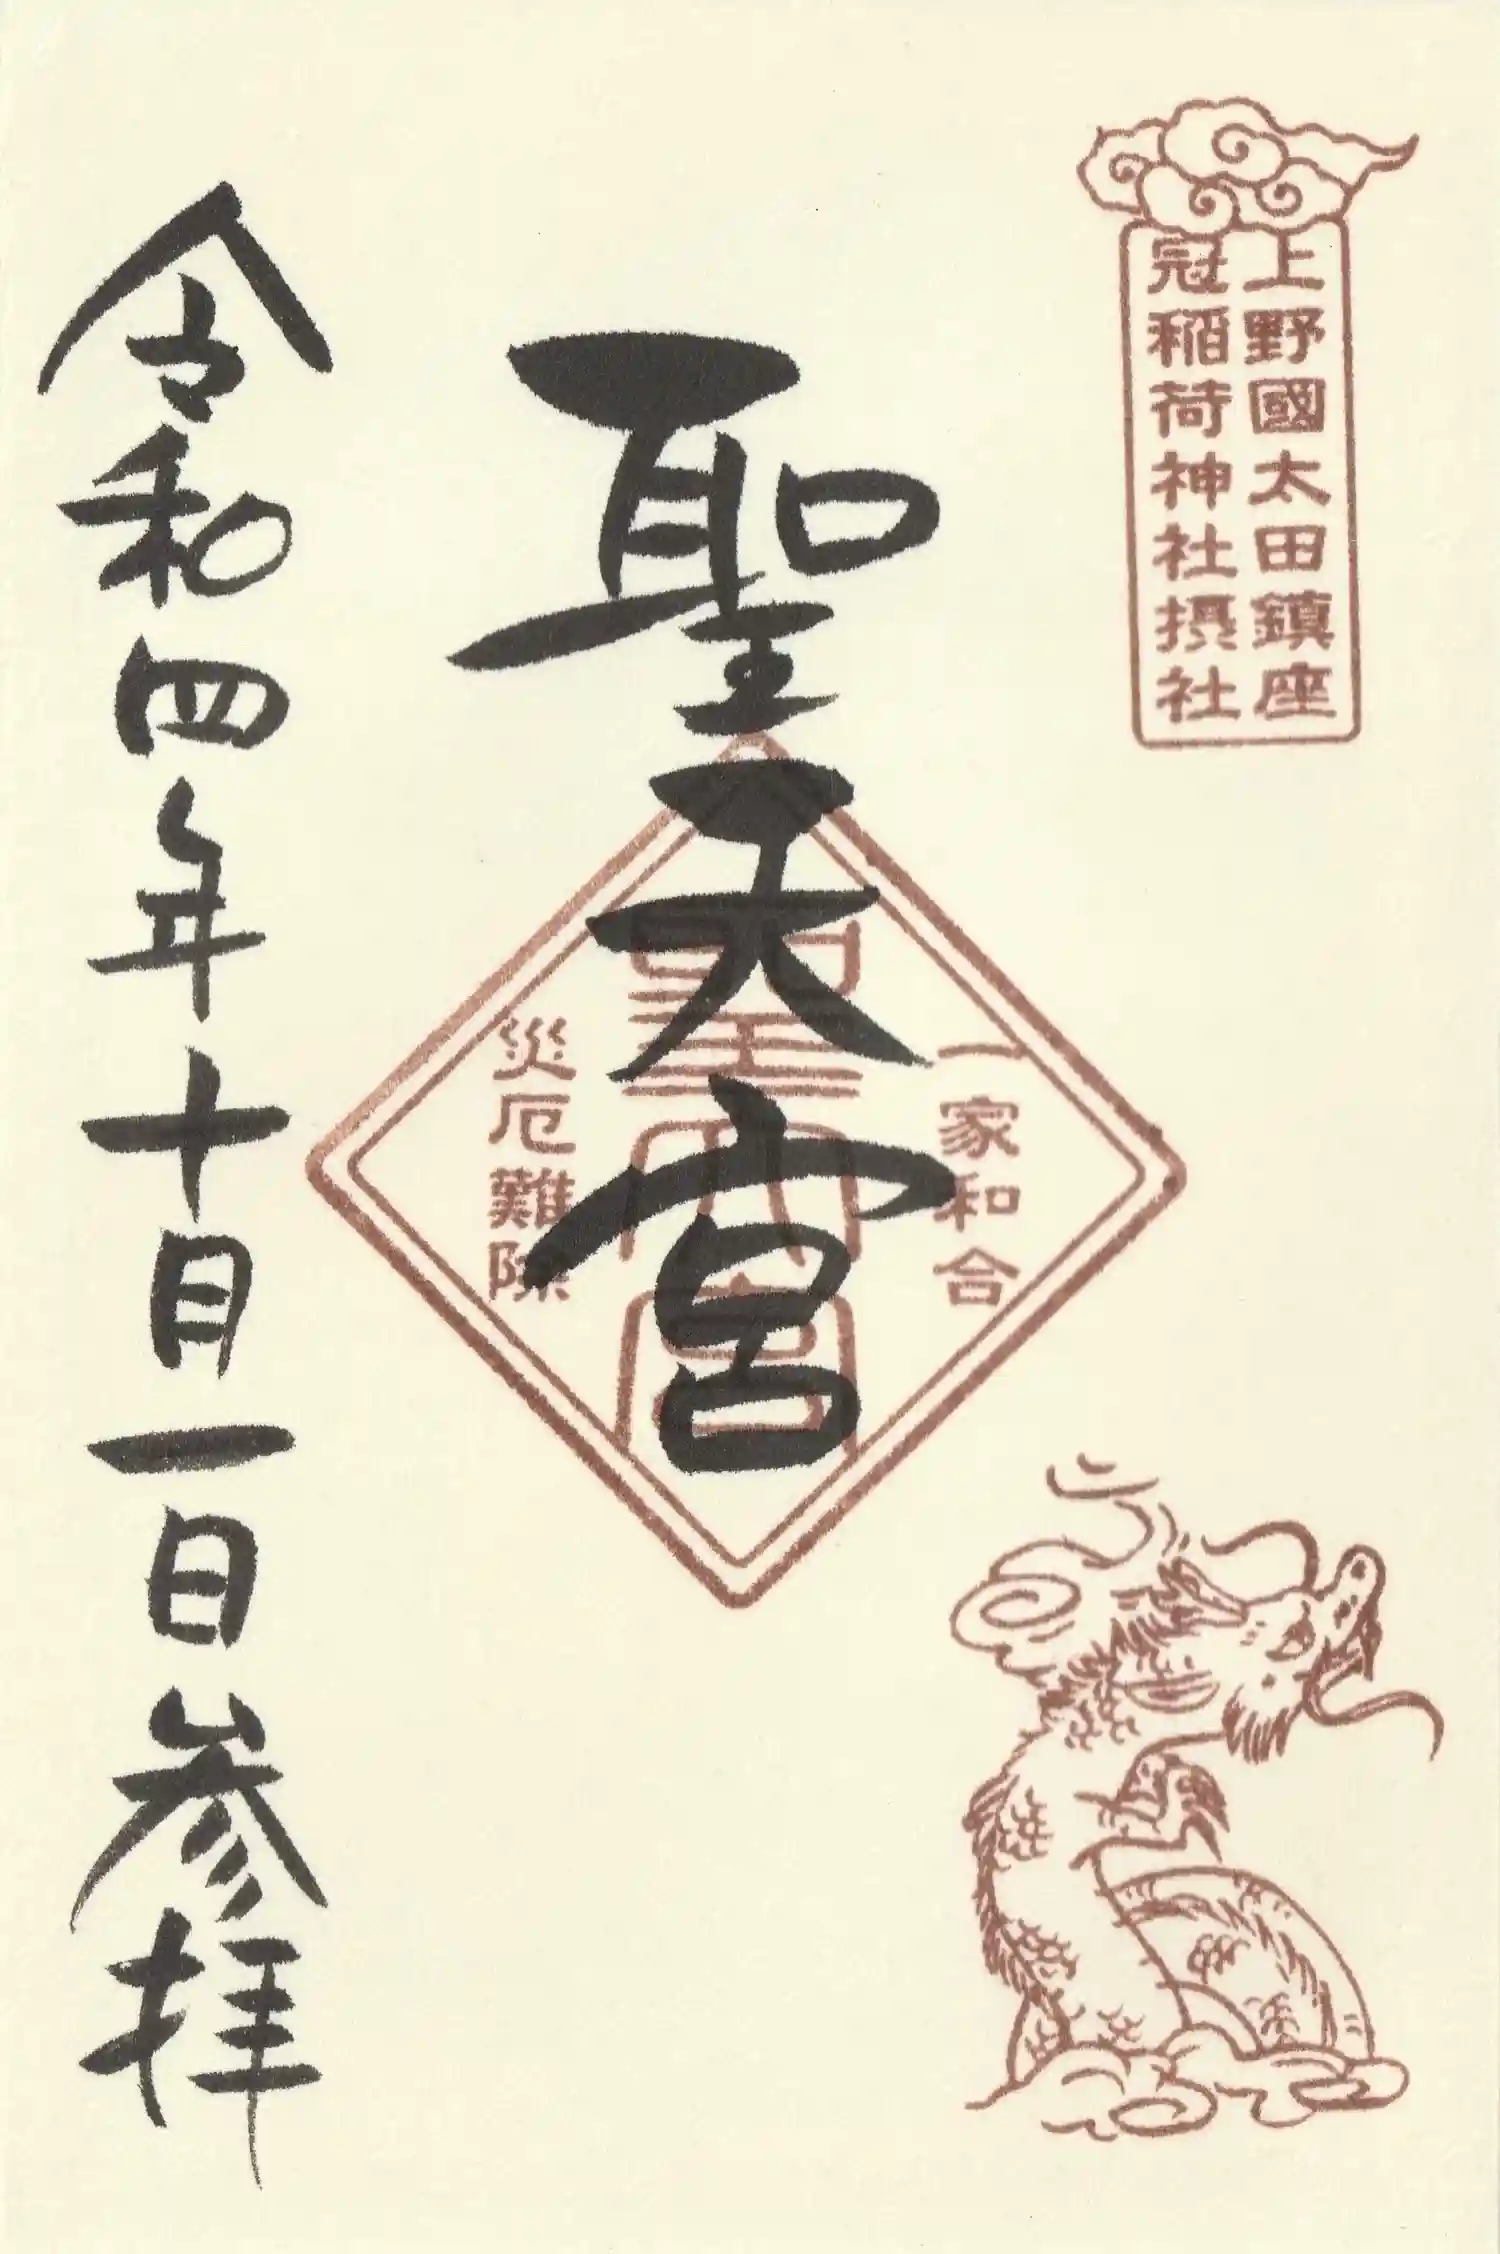 上野國太田鎮座
冠稲荷神社摂社
聖天宮
一家和合
聖天宮
災厄難除
令和四年十月一日参拝